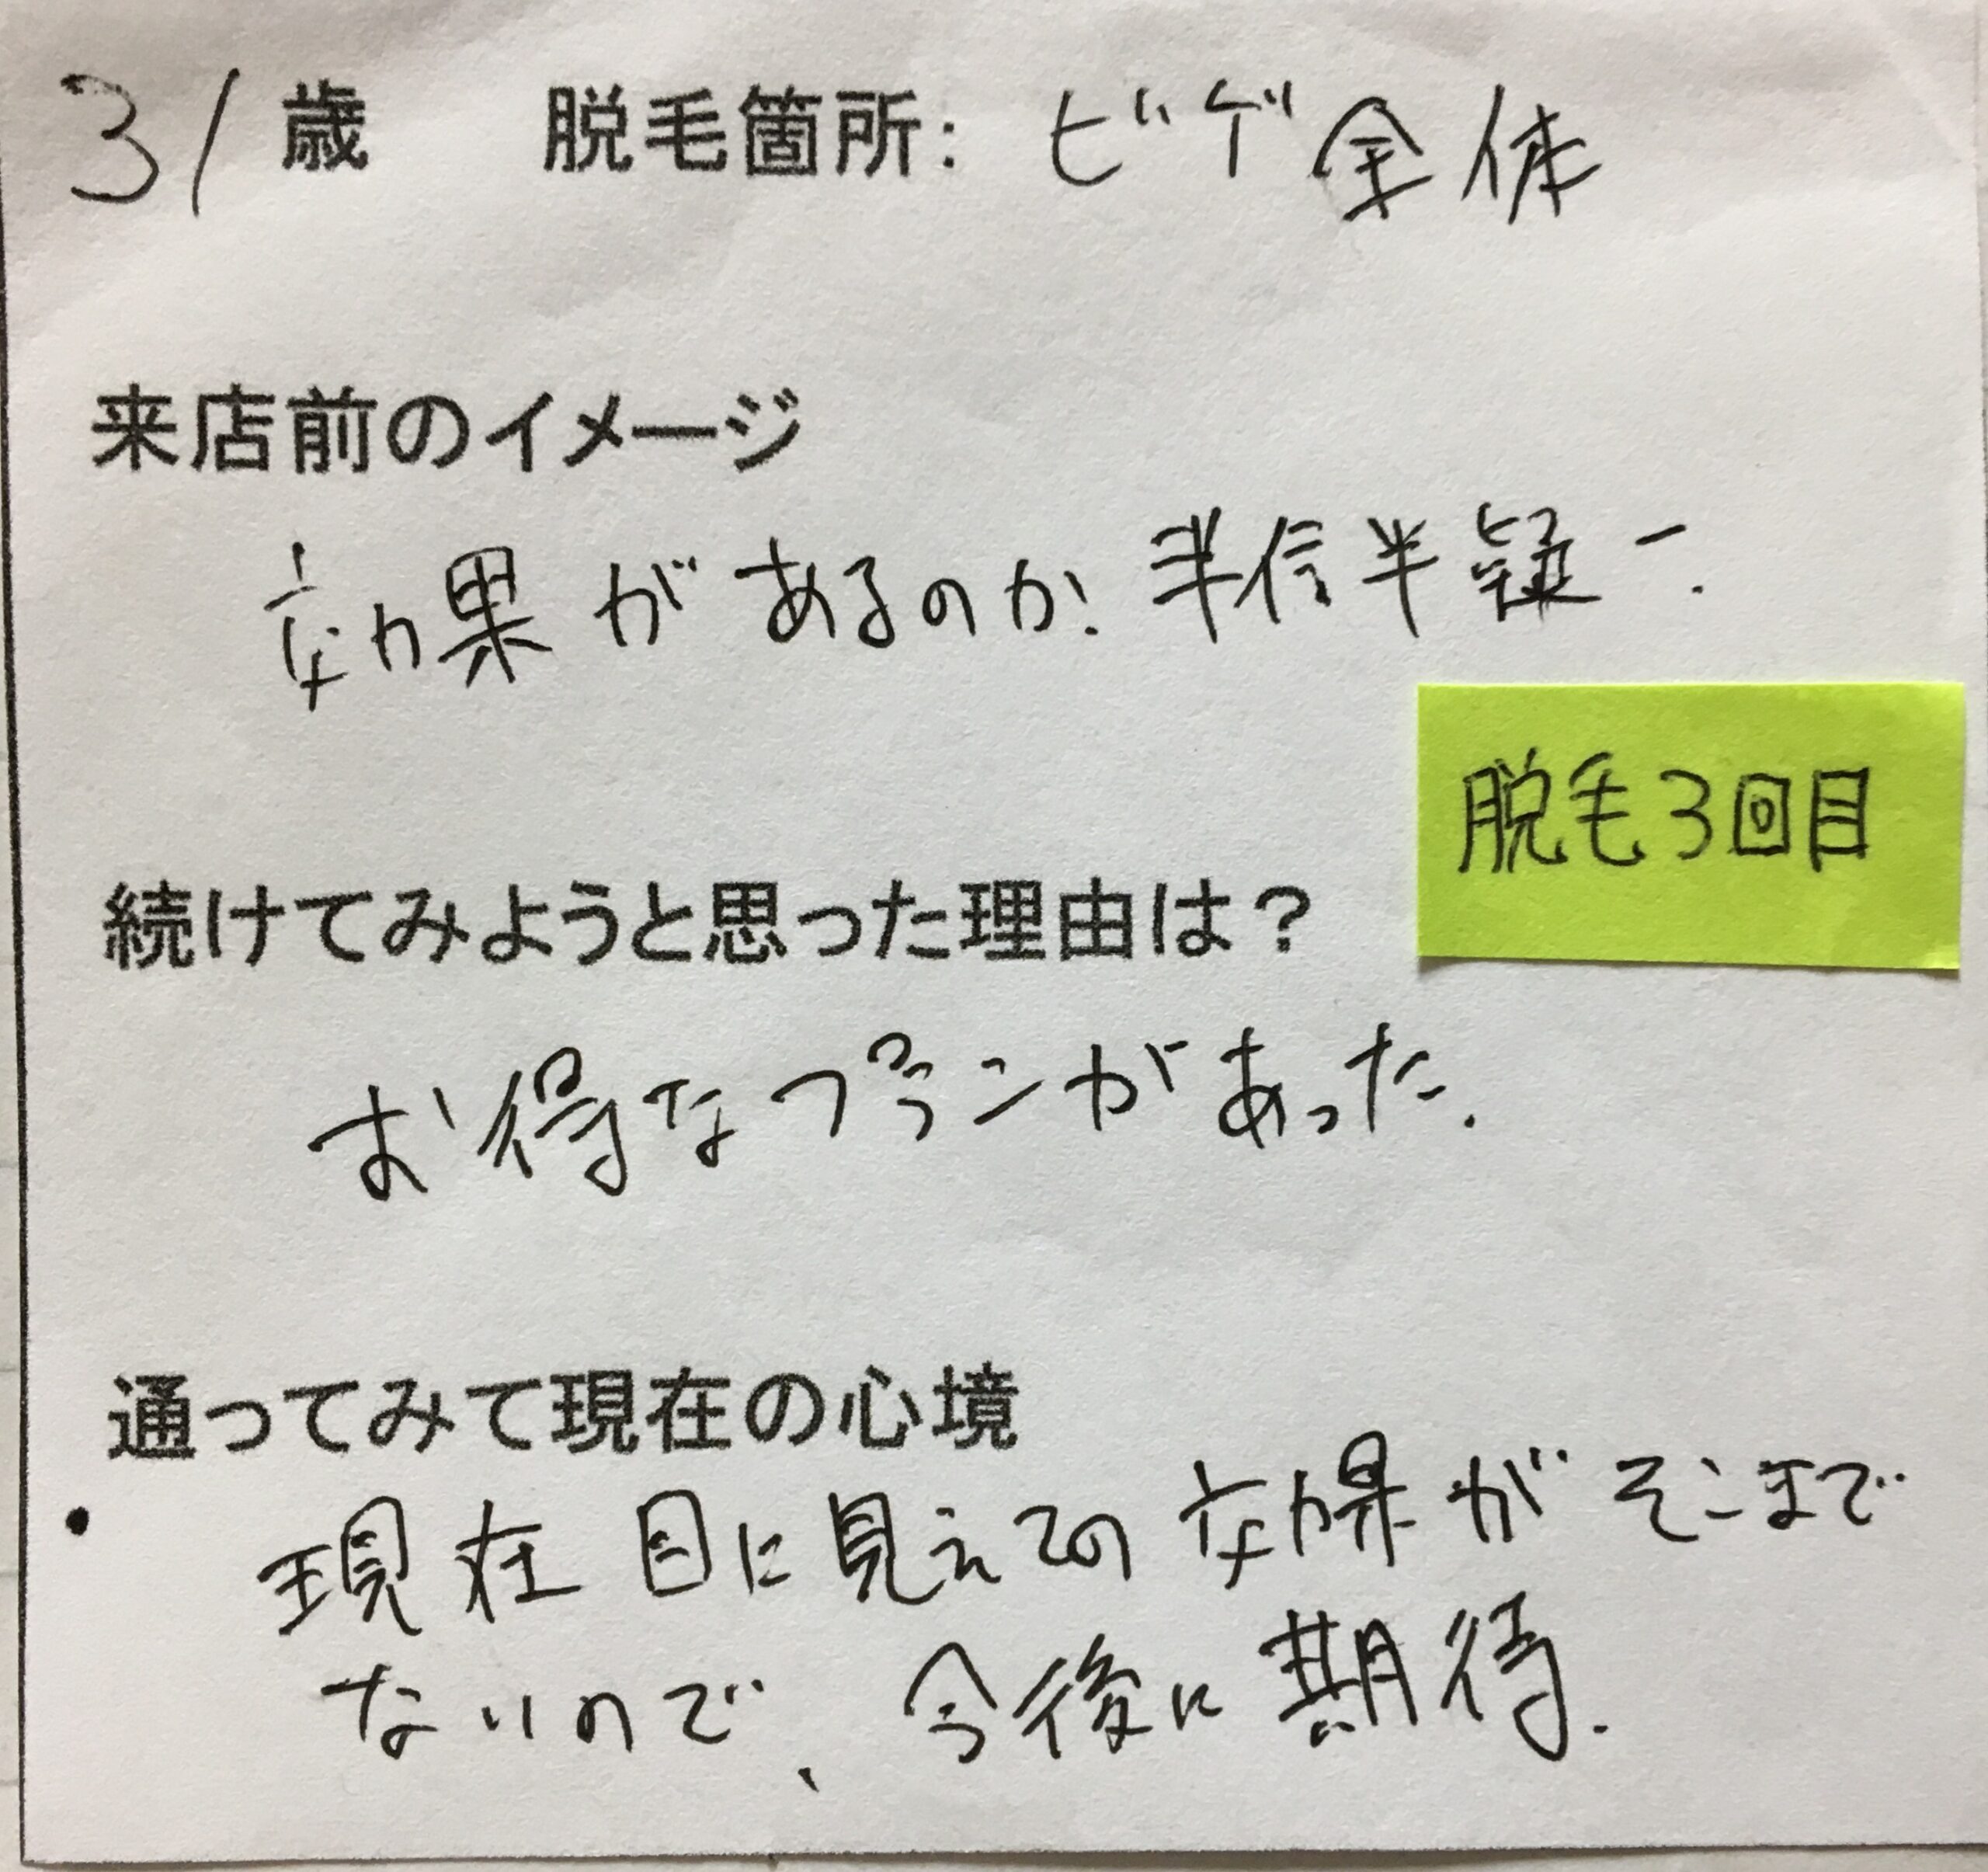 31歳 脱毛箇所: ヒゲ全体
来店前のイメージ
効果があるのか.半信半疑ー.
脱毛3回目
続けてみようと思った理由は？
お得なプランがあった.
通ってみて現在の心境
・現在目に見えての効果がそこまで
ないので、今後に期待.